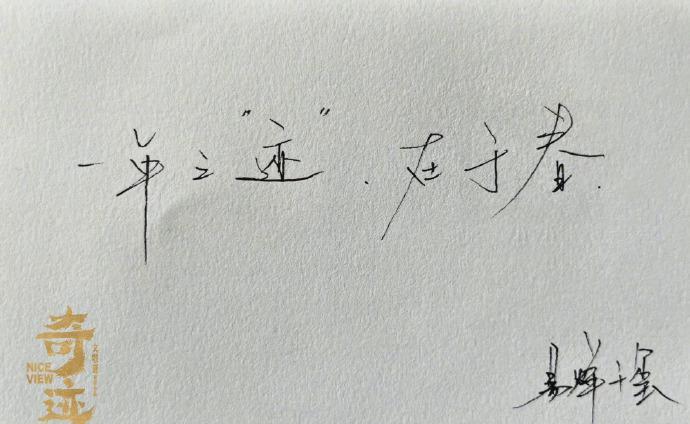 一年之“迹”，在于春.
奇迹
NICE
VIEW
易烊千玺